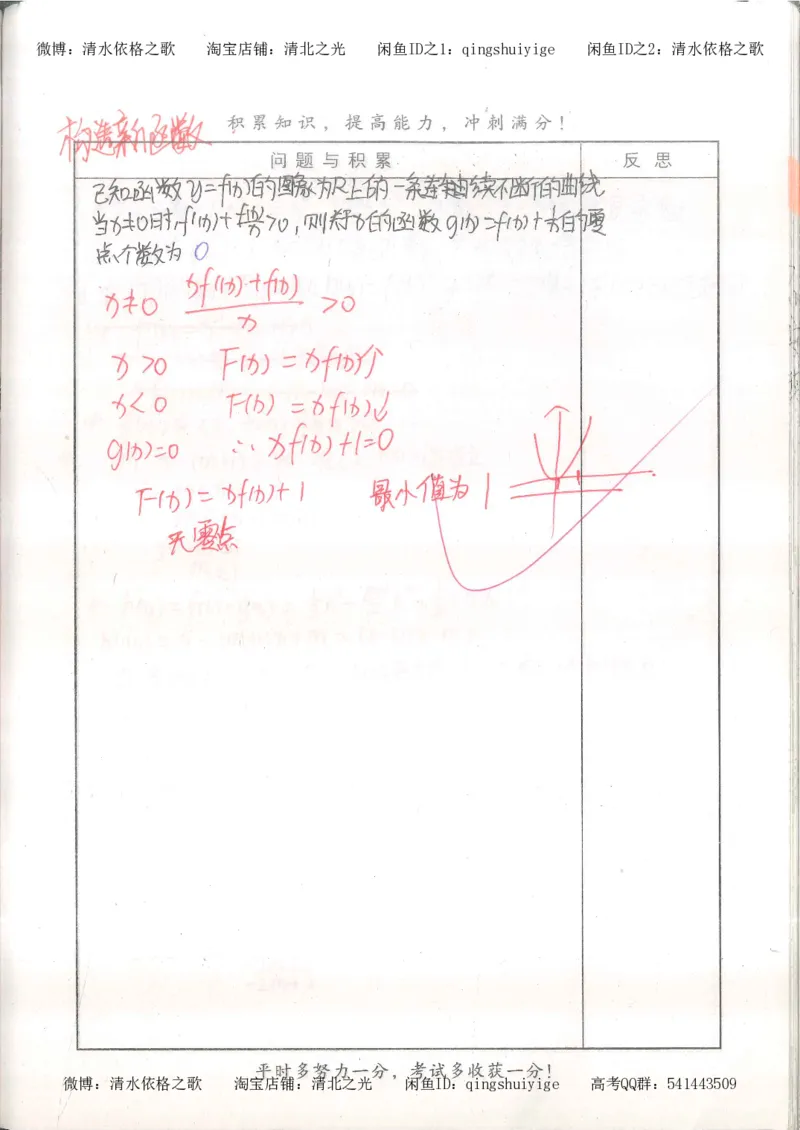 微博：清水依格之歌 淘宝店铺：清北之光 闲鱼ID之1：qingshuiyige 闲鱼ID之2：清水依格之歌
构造新函数
积累知识，提高能力，冲刺满分！
问题与积累 反思
已知函数y=f(x)的图象为R上的一条连续不断的曲线
当x≠0时,f'(x)+f(x)/x>0,则关于x的函数g(x)=f(x)+1/x的零
点个数为 0
x≠0 (xf'(x)+f(x))/x >0
x>0 F(x)=xf(x)↑
x<0 F(x)=xf(x)↓
g(x)=0 ∴xf(x)+1=0
F(x)=xf(x)+1 最小值为1
无零点
平时多努力一分，考试多收获一分！
微博：清水依格之歌 淘宝店铺：清北之光 闲鱼ID：qingshuiyige 高考QQ群：541443509